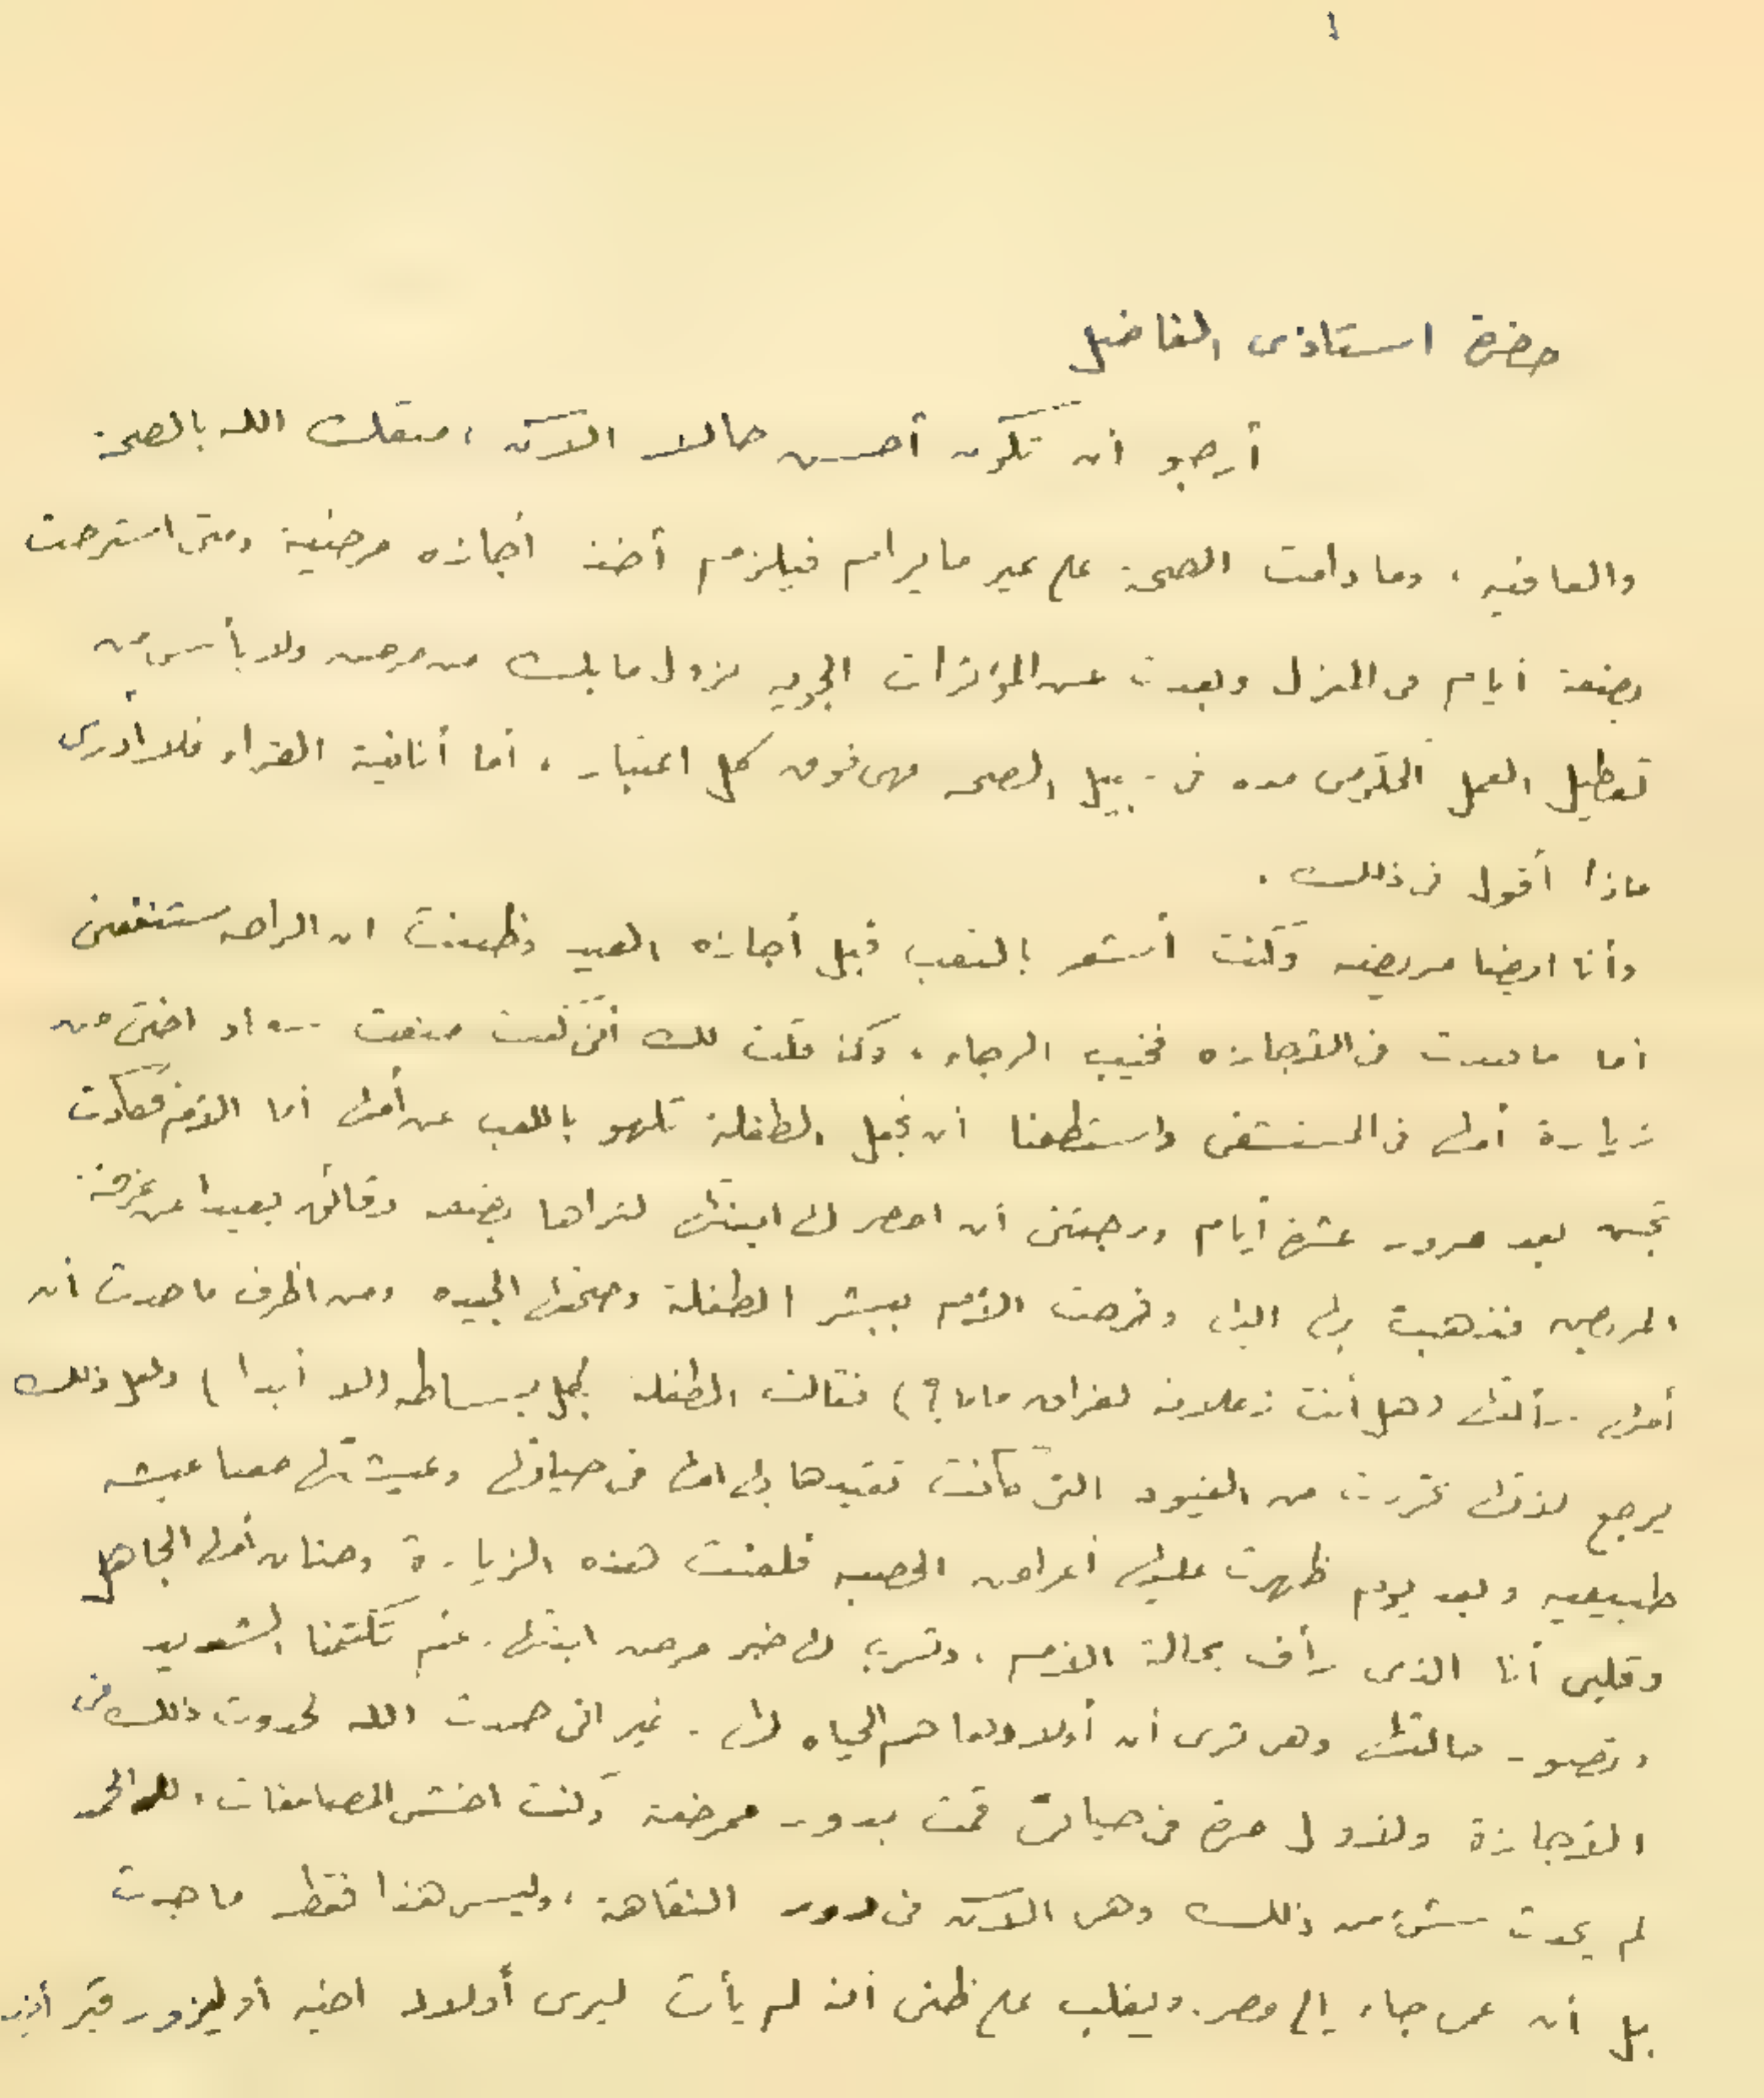 ١
حضرة استاذى الفاضل
أرجو أن تكون أحسن حالا الآن ، متعك الله بالصحة
والعافيه ، وما دامت الصحة على غير ما يرام فيلزم أخذ أجازه مرضية ومتى استرحت
بضعة أيام فى المنزل وبعدت عن المؤثرات الجويه يزول ما بك من مرض ولا بأس من
تعطيل العمل الحكومى مده فى سبيل الصحه فهى فوق كل اعتبار ، أما أنانية القراء فلا أدرى
ماذا أقول فى ذلك .
وأنا ايضا مريضه وكنت أشعر بالتعب قبل أجازه العيد وظننت ان الراحه ستنفعنى
أما ما حدث فى الأجازه فخيب الرجاء ، وكنا قلت لك أننى كنت منعت سعاد اختى من
زيارة أمها فى المستشفى واستطعنا أن نجعل الطفلة تلهو باللعب عن أمها أما الأم فكادت
تجن بعد مرور عشرة أيام ورجتنى أن احضر لها ابنتها لتراها بضعه دقائق بعيدا عن غرفة
المريض فذهبت بها اليها وفرحت الأم ببشر الطفلة وصحتها الجيده ومن اظرف ما حدث أن
أمها سألتها (هل أنت زعلانه لفراق ماما؟) فقالت الطفلة بكل بساطه (لا أبدا) ولعل ذلك
يرجع لأنها تحررت من القيود التى كانت تقيدها بها امها فى حياتها وعيشتها معنا عيشه
طبيعيه وبعد يوم ظهرت عليها أعراض الحصبه فلعنت هذه الزيارة وحنان أمها الجاهل
وقلبى أنا الذى رأف بحالة الأم ، وتسرب لها خبر مرض ابنتها رغم تكتمنا الشديد
وتصور حالتها وهى ترى أن أولادها هم الحياه لها . غير انى حمدت الله لحدوث ذلك فى
الأجازة ولأول مرة فى حياتى قمت بدور ممرضة وكنت اخشى المضاعفات ، لله الحمد
لم يحدث شئ من ذلك وهى الآن فى دور النقاهة ، وليس هذا فقط ما حدث
بل أن عمى جاء إلى مصر . ويغلب على ظنى انه لم يأت ليرى أولاد اخيه أو ليزور قبر أخيه